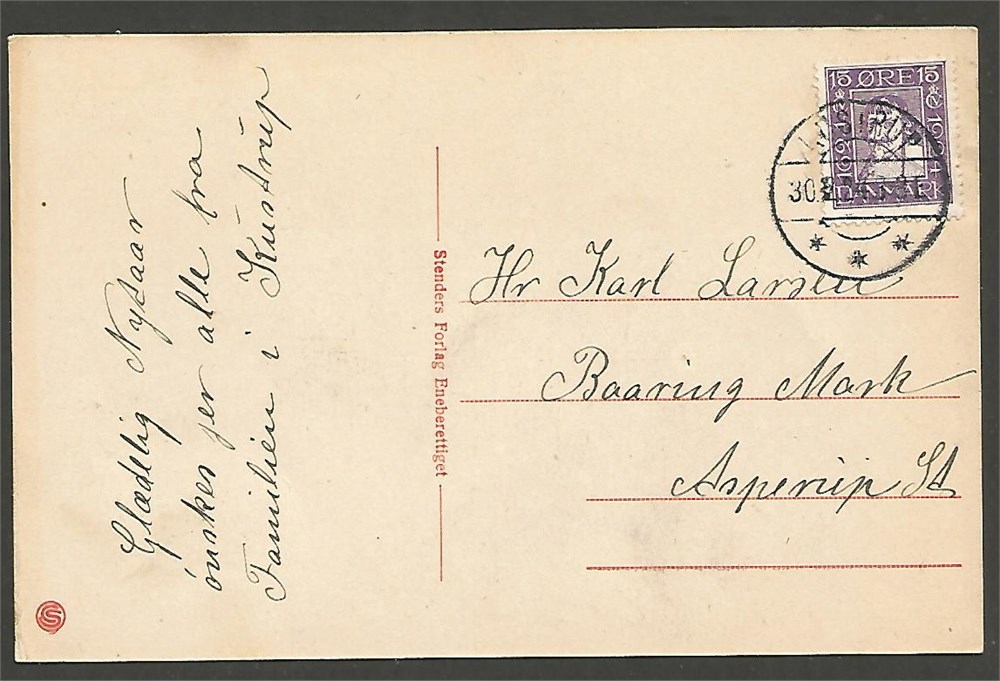 Glædelig Nytaar
ønskes jer alle fra
Familien i Kustrup
Stenders Forlag Eneberettiget
15 ØRE 15
1624 1924
DANMARK
Hr Karl Larsen
Baaring Mark
Asperup St